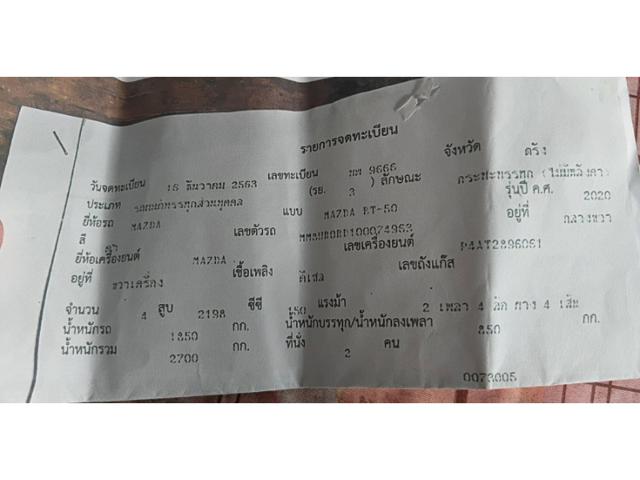 รายการจดทะเบียน
วันจดทะเบียน 15 ธันวาคม 2563 เลขทะเบียน 9666 จังหวัด ตรัง
ประเภท รถยนต์บรรทุกส่วนบุคคล (รย. 3 ) ลักษณะ กระบะบรรทุก (ไม่มีหลังคา)
ยี่ห้อรถ MAZDA แบบ MAZDA BT-50 รุ่นปี ค.ศ. 2020
สี เลขตัวรถ อยู่ที่ กลางขวา
ยี่ห้อเครื่องยนต์ MAZDA เลขเครื่องยนต์ P4AT2896061
อยู่ที่ ขวาเครื่อง เชื้อเพลิง ดีเซล เลขถังแก๊ส
จำนวน 4 สูบ 2198 ซีซี 150 แรงม้า 2 เพลา 4 ล้อ ยาง 4 เส้น
น้ำหนักรถ 1850 กก. น้ำหนักบรรทุก/น้ำหนักลงเพลา 850 กก.
น้ำหนักรวม 2700 กก. ที่นั่ง 2 คน
0073005